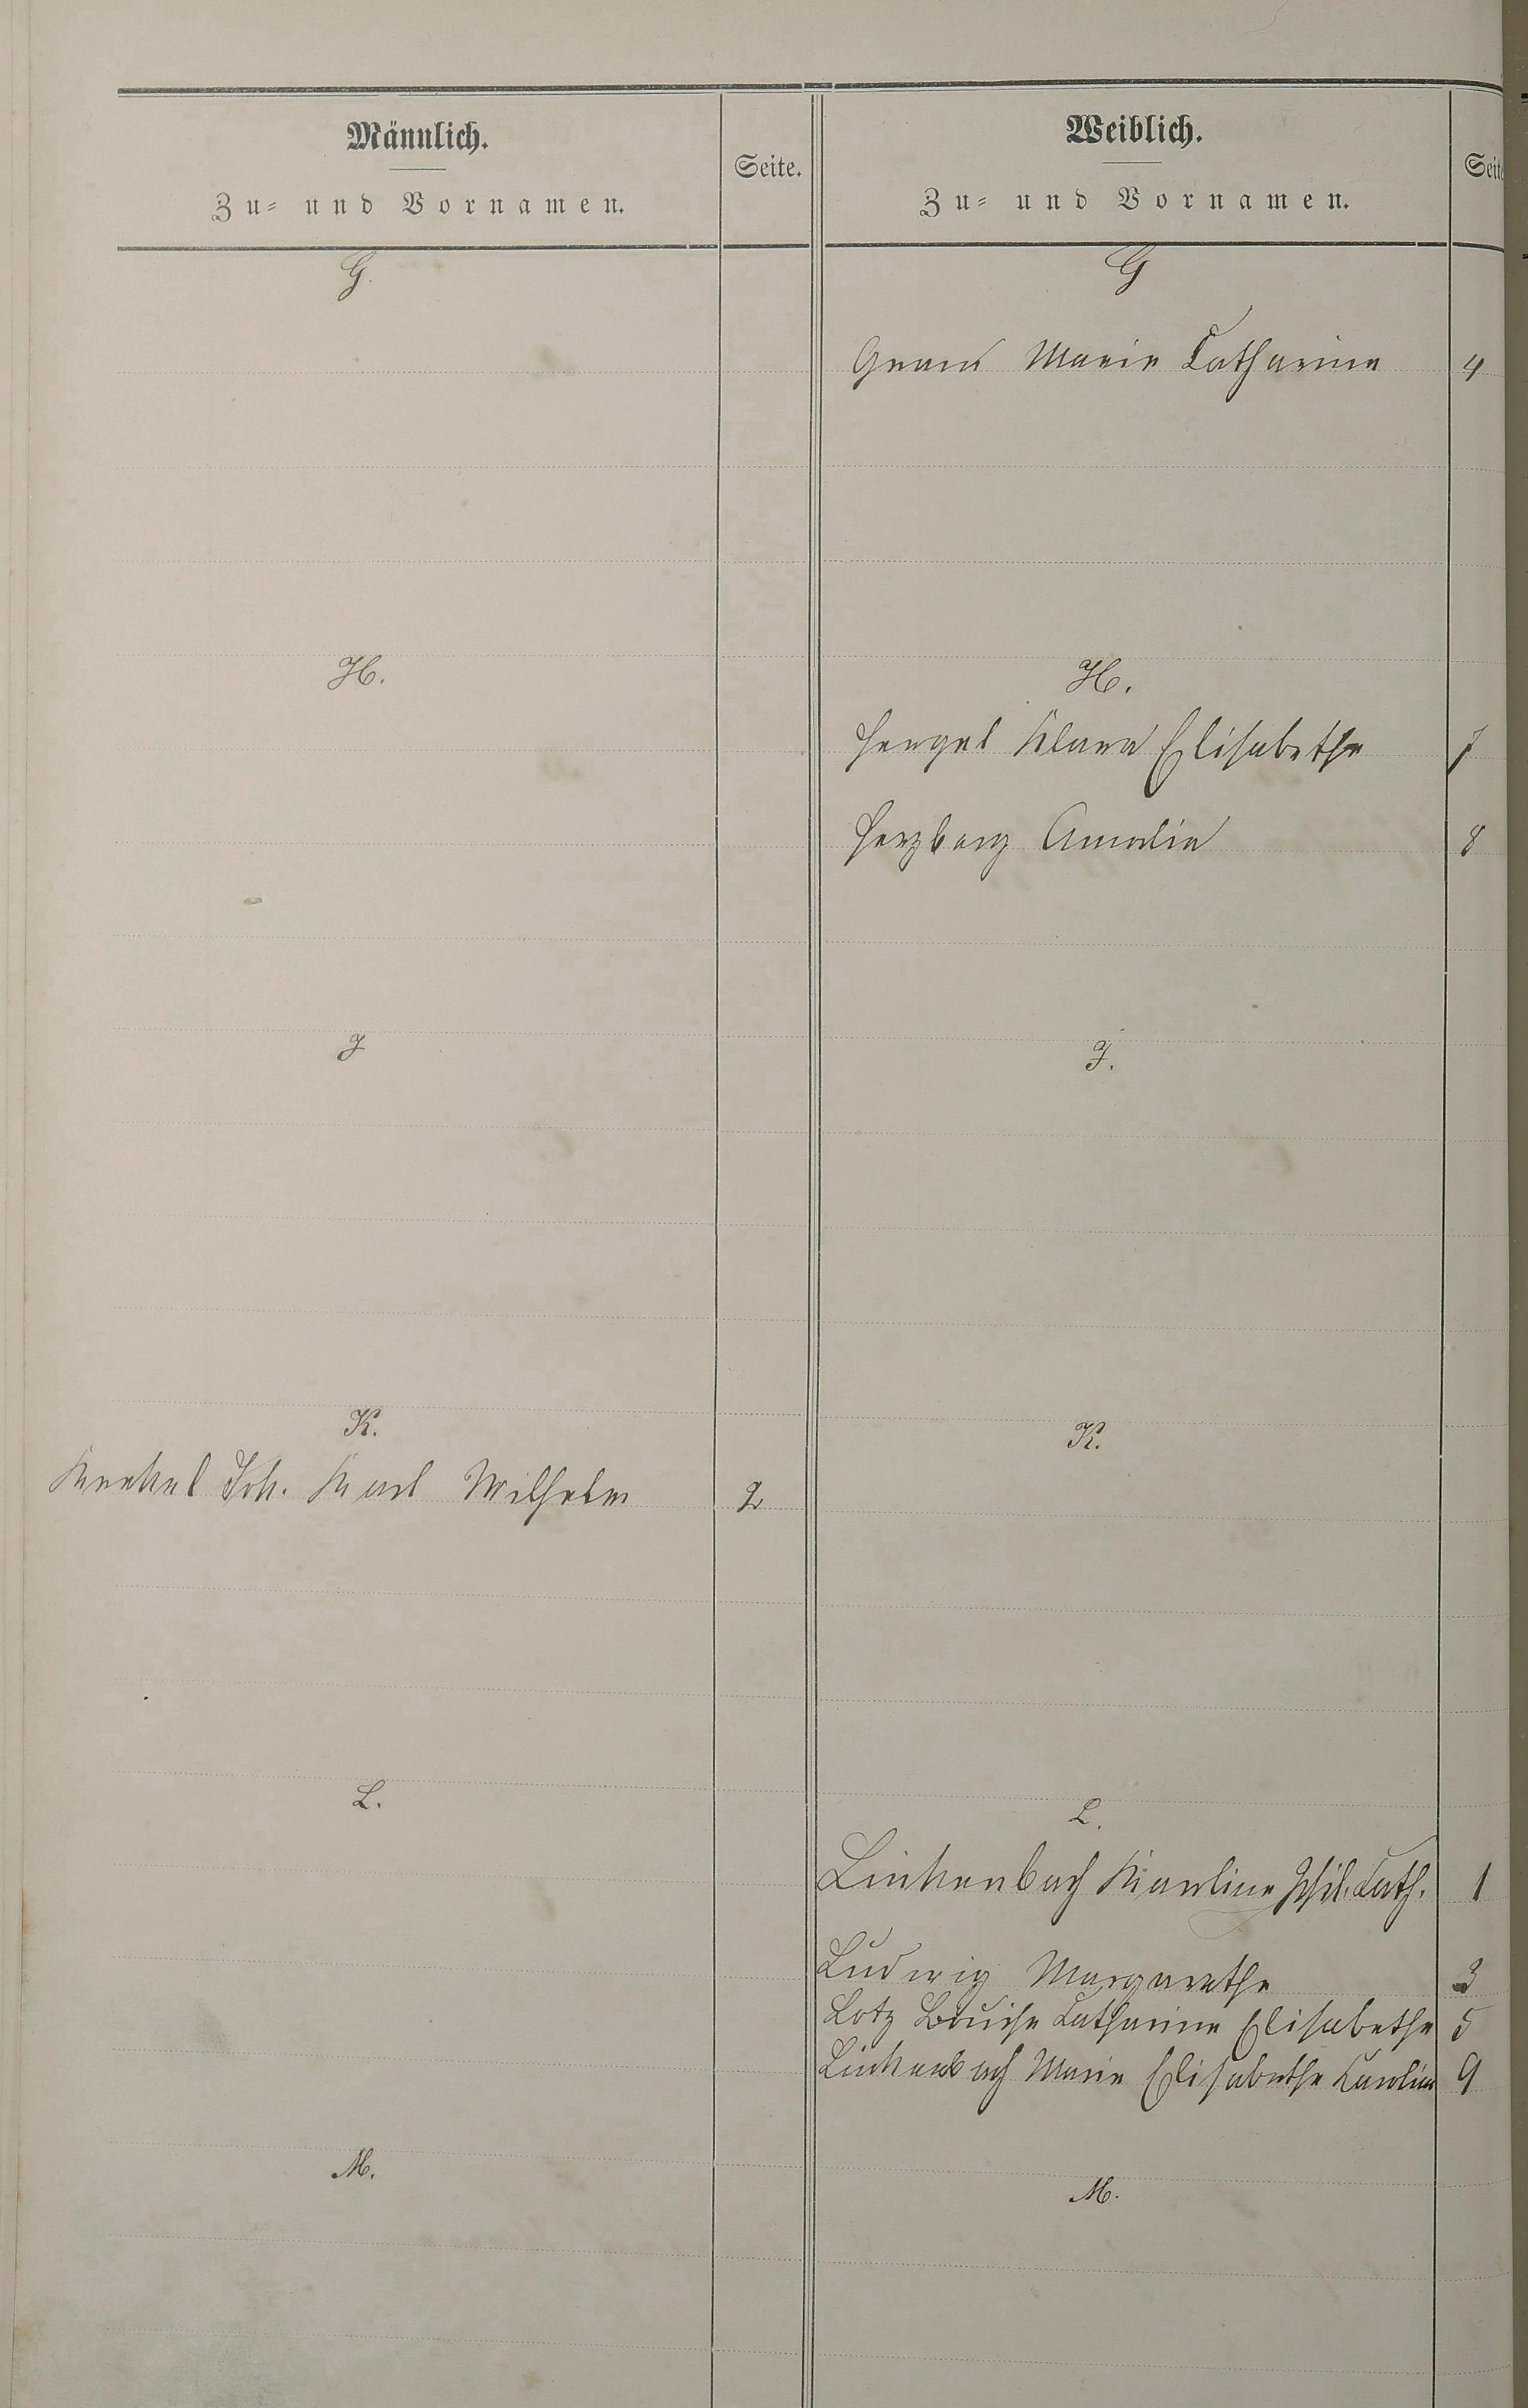 Männlich.
Zu- und Vornamen.
Seite.
Weiblich.
Zu- und Vornamen.
Seite
G.
G
Marie Catharina 4
H.
H.
Klara Elisabethe 7
Herzberg Amalia 8
J
J.
K.
K.
Joh. Karl Wilhelm 2
L.
L.
Linkenbach Karoline Phil. Cath. 1
Ludwig Margarethe 3
Lotz Louise Catharine Elisabethe 5
Linkenbach Marie Elisabethe Caroline 9
M.
M.